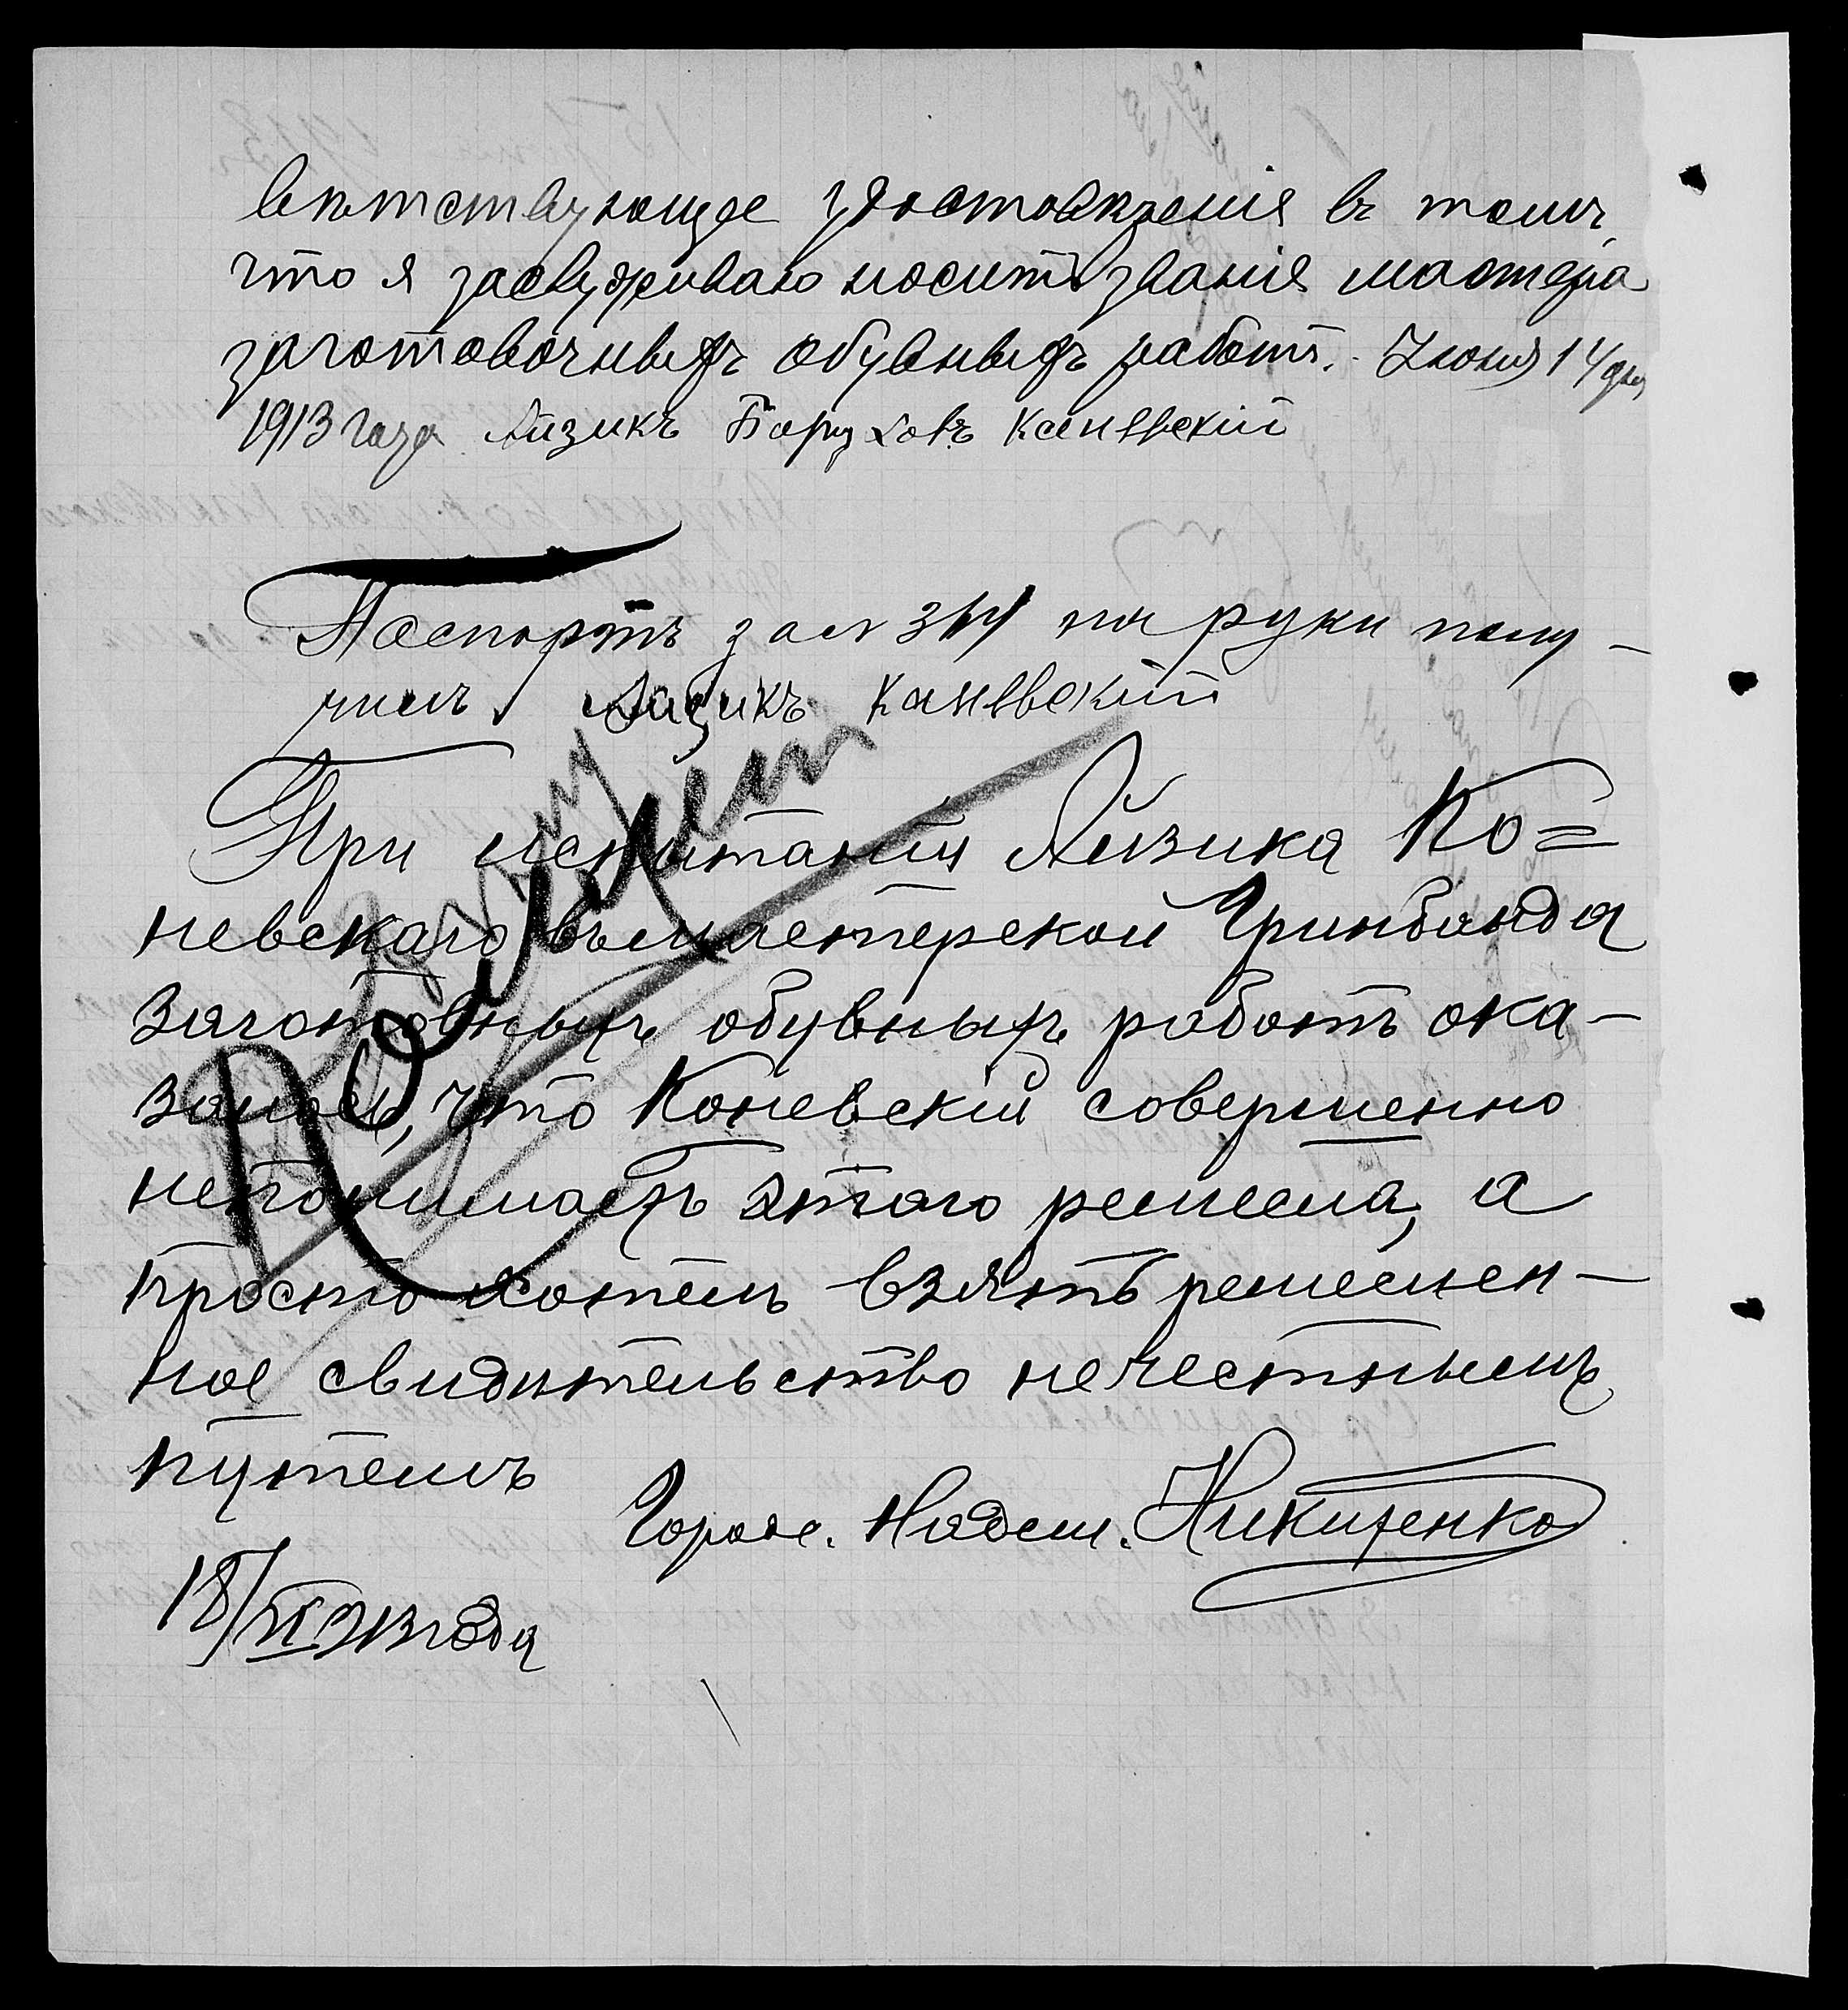 вѣтствующее удостовѣренія въ томъ,
что я заслуживаю носить званія мастера
заготовочныхъ обувныхъ работъ. Іюня 14 дня
1913 года Айзикъ Боруховъ Каневскій
Паспортъ за № 314 на руки полу-
чилъ Айзикъ Каневскій
При испытаніи Айзика Ко=
невскаго въ мастерской Гринбанда
заготовныхъ обувныхъ работъ ока-
залось, что Коневскій совершенно
непонимаетъ этого ремесла, а
просто хотелъ взять ремеслен-
ное свидѣтельство нечестнымъ
путемъ
Городс. Надзи. Никитенко
18/VI 913 года